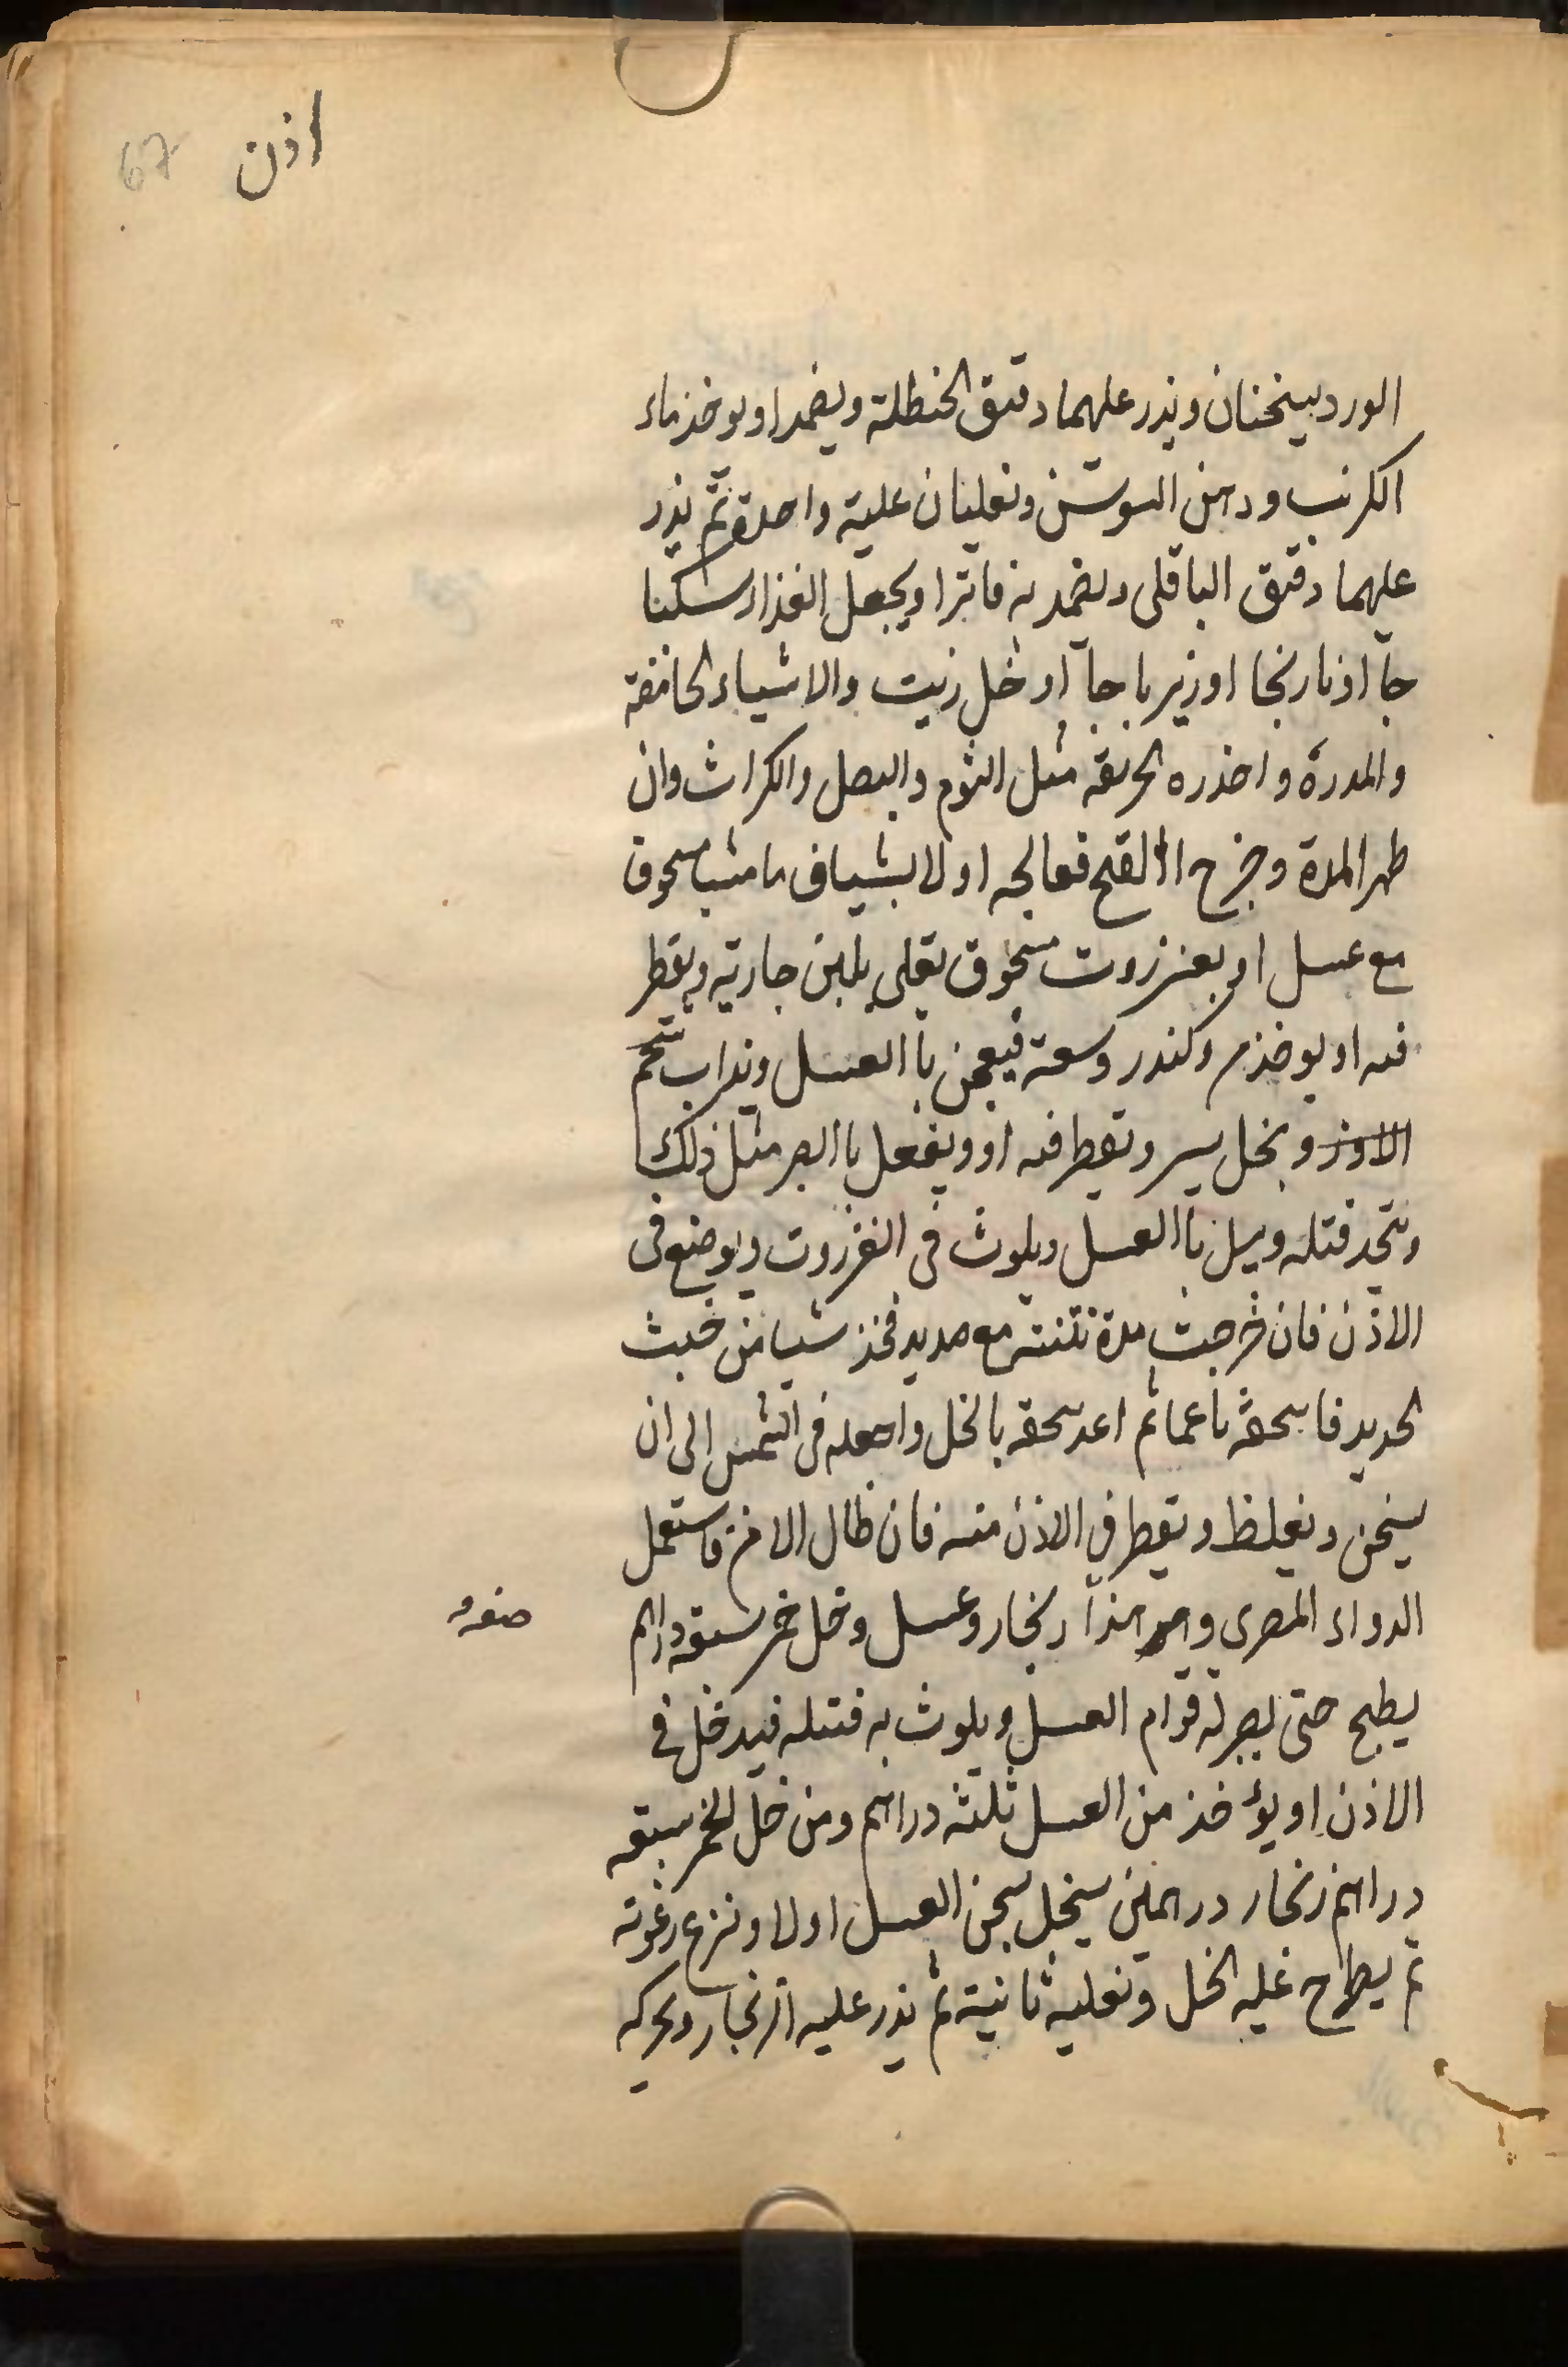 اذن 67
الورد يسخنان ويذر عليهما دقيق الحنطلة ويضمد او يوخذ ماء
الكرنب ودهن السوسن وتغليان غلية واحدة ثم يذر
عليهما دقيق الباقلى ويضمد به فاترا ويجعل الغذاء سكبا
جا او نارنجا او زيرباجا او خل زيت والاشياء الحامضة
والمدرة واحذره الحريفة مثل الثوم والبصل والكراث وان
ظهر المدة وخرج القيح فعالجه اولا بشياف ماميثا مسحوق
مع عسل او بعنزروت مسحوق يغلى بلبن جارية ويقطر
فيه او يوخذ مر وكندر وسعة فيعجن باالعسل ويذاب شحم
الاوز وبخل يسير وتقطر فيه او ويفعل باالصبر مثل ذلك
ويتخذ فتيلة ويبل باالعسل ويلوث فى العنزروت ويوضع فى
الاذن فان خرجت مدة نتنة مع صديد فخذ شيا من خبث
الحديد فاسحقه ناعما ثم اعد سحقه بالخل واجعله فى الشمس الى ان
يسخن ويغلظ ويقطر في الاذن منه فان طال الامر فاستعمل
الدواء المصرى وهو هذا زنجار وعسل وخل خمر سبعة دراهم
صفة
يطبخ حتى يصير له قوام العسل ويلوث به فتيلة فيدخل في
الاذن او يؤخذ من العسل ثلثة دراهم ومن خل الخمر سبعة
دراهم زنجار درهمين ينخل يسخن العسل اولا وتنزع رغوته
ثم يطرح عليه الخل وتغليه ثانية ثم يذر عليه الزنجار ويحركه